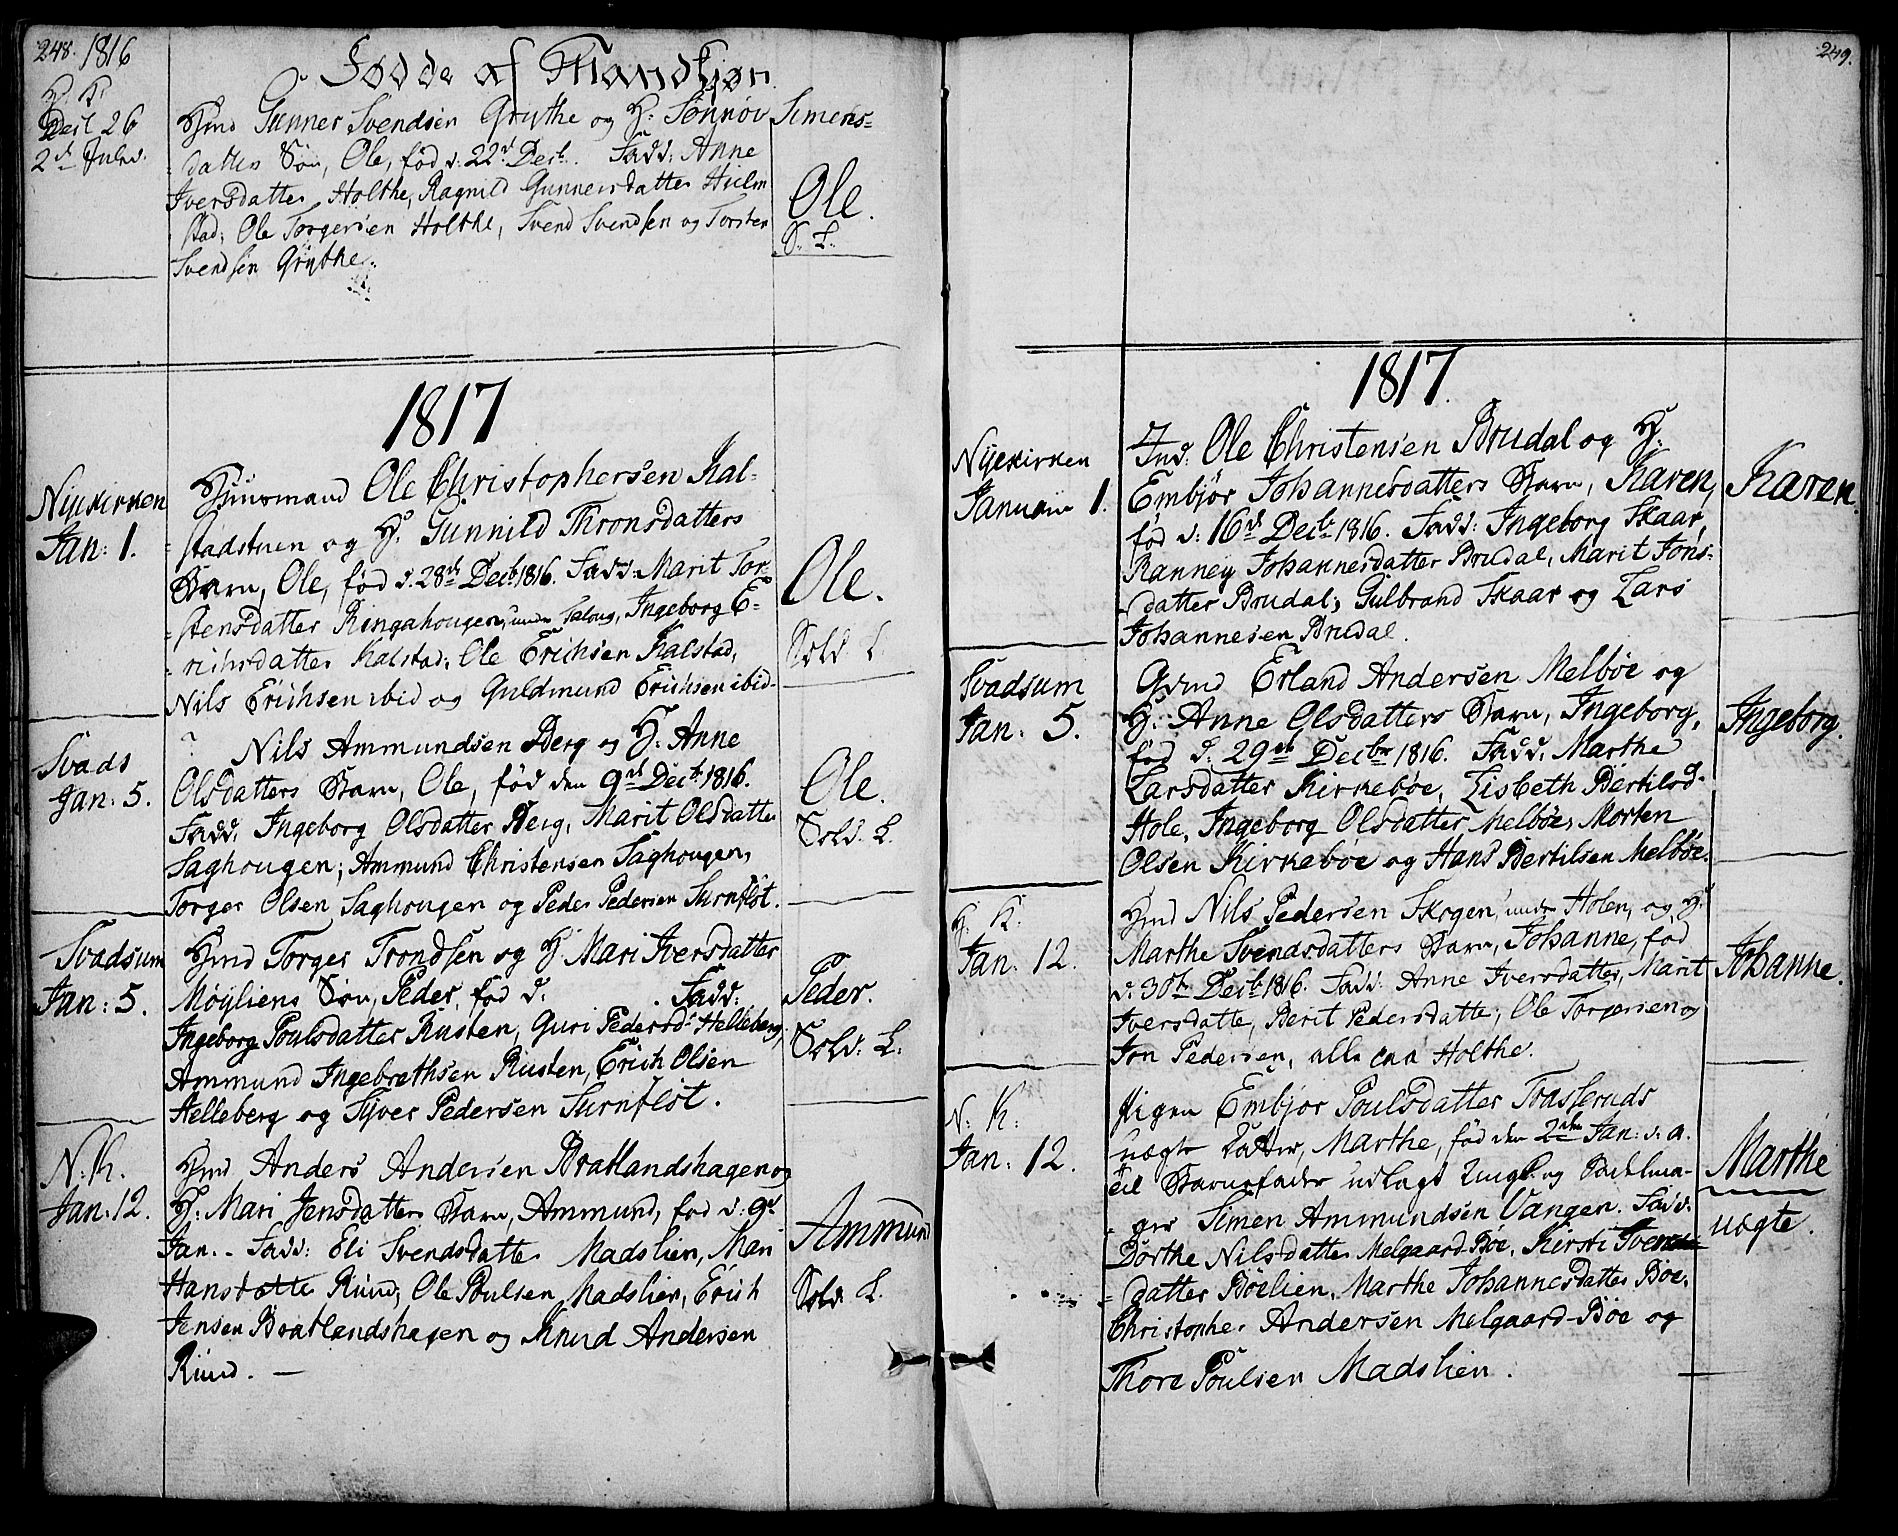 248. 1816
Fødde af Mandkjøn
H. K.
Decb 26
2d Juled.
Hmd Gunner Svendsen Grythe og H: Sønnov Simens-
datters Søn, Ole, fød d: 22d Decb. Fadd: Anne
Iversdatter Holthe, Ragnild Gunnersdatter Hielm
stad; Ole Torgersen Holthe, Svend Svendsen og Torsten
Svendsen Grythe.
Ole.
S. L.
1817
Nyekirken
Jan: 1.
Huusmand Ole Christophersen Kal-
stadstuen og H. Gunnild Thronsdatters
Barn, Ole, fød d. 28de Decb 1816. Fadd: Marit Tor-
stensdatter Ringahougen, under Taloug, Ingeborg E-
richsdatter Kalstad; Ole Erichsen Kalstad,
Nils Erichsen ibid og Guldmund Erichsen ibid-
Ole.
Sold. L.
Svads
Jan: 5.
Nils Ammundsen Berg og H: Anne
Olsdatters Barn, Ole, fød den 9de Decb: 1816.
Fadd. Ingeborg Olsdatter Berg, Marit Olsdatter
Saghougen; Ammund Christensen Saghougen,
Torger Olsen Saghougen og Peder Pedersen Surnflöt.
Ole.
Sold. L.
Svadsum
Jan: 5.
Hmd Torger Trondsen og H. Mari Iversdatter
Møÿliens Søn, Peder, fød d. . Fadd:
Ingeborg Poulsdatter Rusten, Guri Pedersd: Helleberg,
Ammund Ingebrethsen Rusten, Erich Olsen
Helleberg og Syver Pedersen Surnflöt.
Peder.
Sold. L.
N. K.
Jan: 12.
Hmd Anders Andersen Bratlandshagen og
H: Mari Jensdatters Barn, Ammund, fød d: 9d
Jan. - Fadd: Eli Svendsdatter Madslien, Mari
Hansdatter Rund; Ole Poulsen Madslien, Erich
Jensen Bratlandshagen og Knud Andersen
Rund. —
Ammund
Sold. L.
249.
1817.
Nyekirken
Januarii 1.
Ind: Ole Christensen Brudal og H.
Embjør Johannesdatters Barn, Karen,
fød d. 16d Decb 1816. Fadd: Ingeborg Skaar,
Ranney Johannesdatter Brudal, Marit Jons-
datter Brudal; Gulbrand Skaar og Lars
Johannesen Brudal.
Karen.
Svadsum
Jan: 5.
Gmd Erland Andersen Melbøe og
H: Anne Olsdatters Barn, Ingeborg,
fød d. 29de Decbr 1816. Fadd. Marthe
Larsdatter Kirkebøe, Lisbeth Bertilsd.
Hole, Ingeborg Olsdatter Melbøe, Morten
Olsen Kirkebøe og Hans Bertilsen Melbøe.
Ingeborg.
H. K.
Jan: 12.
Hmd Nils Pedersen Skogen, under Holen, og H.
Marthe Svendsdatters Barn, Johanne, fød
d: 30te Decb 1816. Fadd: Anne Iversdatter, Marit
Iversdatte, Berit Pedersdatte; Ole Torgersen og
Jon Pedersen, alle paa Holthe.
Johanne.
N: K:
Jan: 12.
Pigen Embjør Poulsdatter Traaseruds
uægte Datter, Marthe, fød den 2den Jan: d. a.
til Barnefader udlagt Ungk. og Sadelma-
ger Simen Ammundsen Vangen. Fadd.
Dorthe Nilsdatter Melgaard-Bøe, Kirsti Svens-
datter Böelien, Marthe Johannesdatter Böe,
Christopher Andersen Melgaard-Böe og
Thore Poulsen Madslien.
Marthe
uægte.